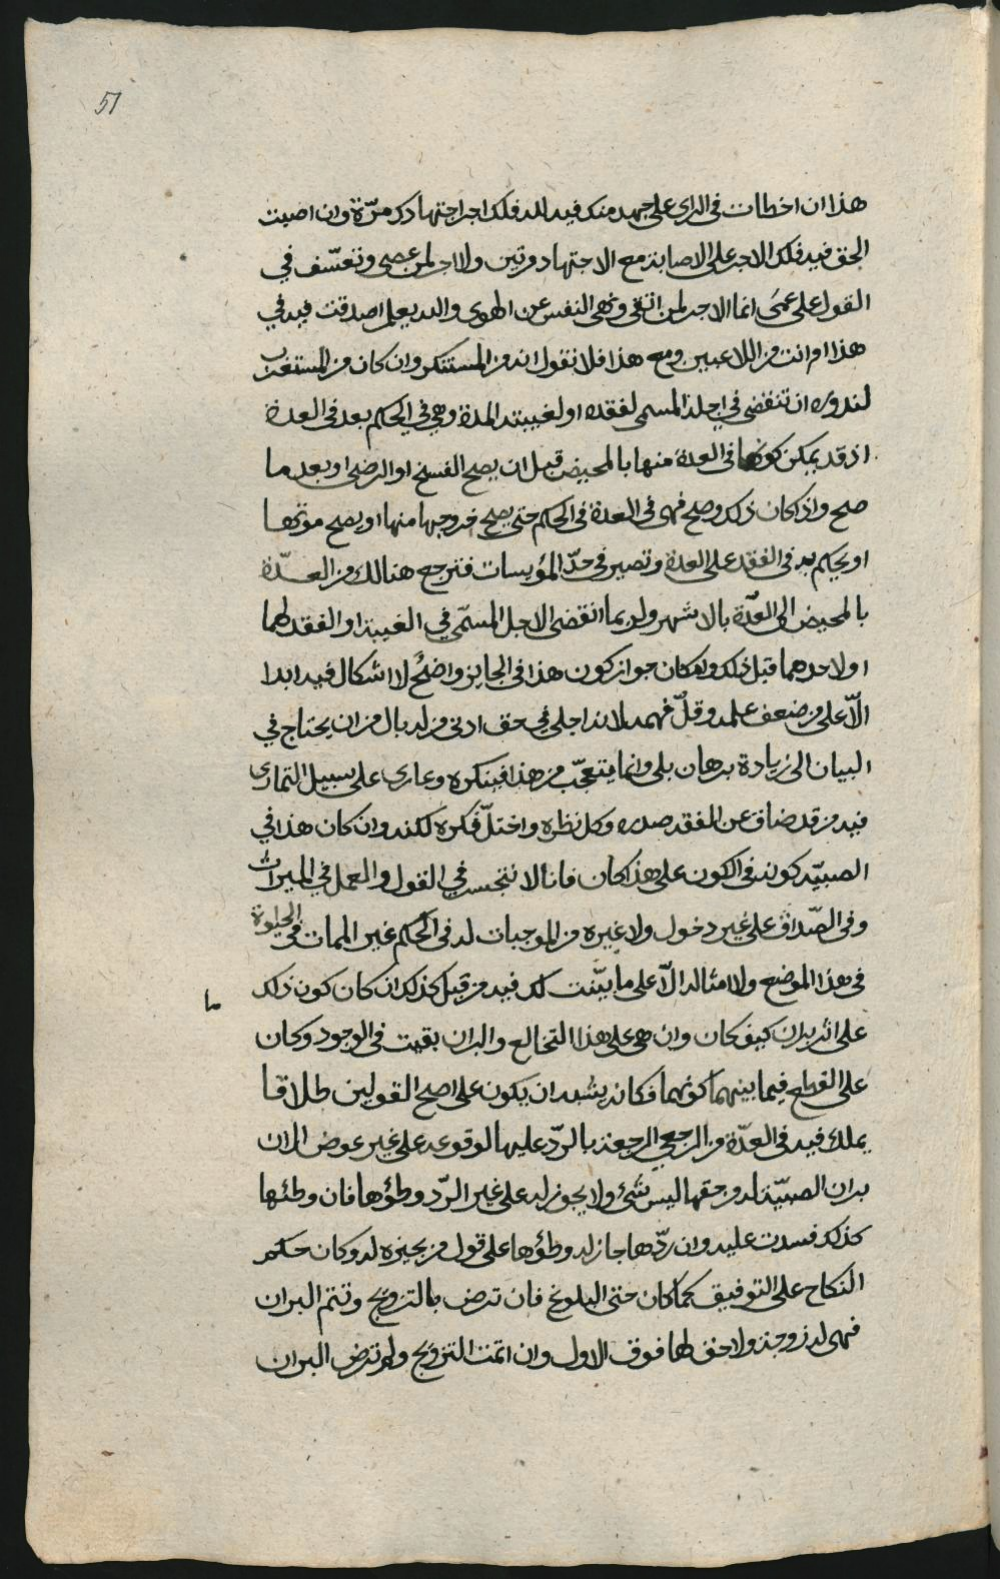 51
هذا ان اخطات في الراي على جهد منك فيه لله فلك اجر اجتهادك مرّة وان اصبت
الحق فيه فلك الاجر على الاصابة مع الاجتهاد مرتين ولا اجر لمن عصى وتعسّف في
القول على عمى انما الاجر لمن اتقى ونهى النفس عن الهوى والله يعلم اصدقت فيه في
هذا ام انت من اللاعبين ومع هذا فلا نقول انه من المستنكر وان كان من المستغرب
لندوره ان تنقضي في اجله المسمى لفقده او لغيبته المدة وهي في الحكم بعد في العدة
اذ قد يمكن كونها في العدة منها بالمحيض قبل ان يصح الفسخ او الرضى او بعد ما
صح واذا كان ذلك وصح فهي في العدة في الحكم حتى يصح خروجها منها او يصح موتها
او يحكم به في الفقد على العدة وتصير في حدّ المؤيسات فترجع هنالك من العدّة
بالمحيض الى العدّة بالاشهر ولربما انقضى الاجل المسمّى في الغيبة او الفقد لهما
او لاحدهما قبل ذلك وامكان جواز كون هذا في الجايز واضحٌ لا اشكال فيه ابدا
الّا على من ضعف علمه وقلّ فهمه لانه اجلى في حق ادنى من له بال من ان يحتاج في
البيان الى زيادة برهان بلى وانما يتعجّب من هذا فينكره ويمارى على سبيل التمارى
فيه من قد ضاق عن الفقه صدره وكل نظره واختلّ فكره لكنه وان كان هذا في
الصبيّة كونه في الكون على هذا كان فانا لا نتجسر في القول والعمل في الميراث
وفي الصّداق على غير دخول ولا غيره من الموجبات له في الحكم غير الممات في الحياوة
في هذا الموضع ولا امثاله الّا على ما بيّنت لك فيه من قبل كذلك ان كان كون ذلك
ما
على اثر بران كيف كان وان هي على هذا التخالع والبران بقيت في الوجود وكان
على القطع فيما بينهما كونهما فكانه يشبه ان يكون على اصح القولين طلاقا
يملك فيه في العدّة من الرجعي الرجعة بالردّ عليها لوقوعه على غير عوض اذ ان
بران الصبيّة له من حقها ليس بشئ ولا يجوز له على غير الردّ وطؤها فان وطئها
كذلك فسدت عليه وان ردّها جاز له وطؤها على قول من يجيزه له وكان حكم
النكاح على التوقيف كما كان حتى البلوغ فان ترض بالتزويج وتتم البران
فهي له زوجة ولا حق لها فوق الاول وان اتمت التزويج ولم ترض البران